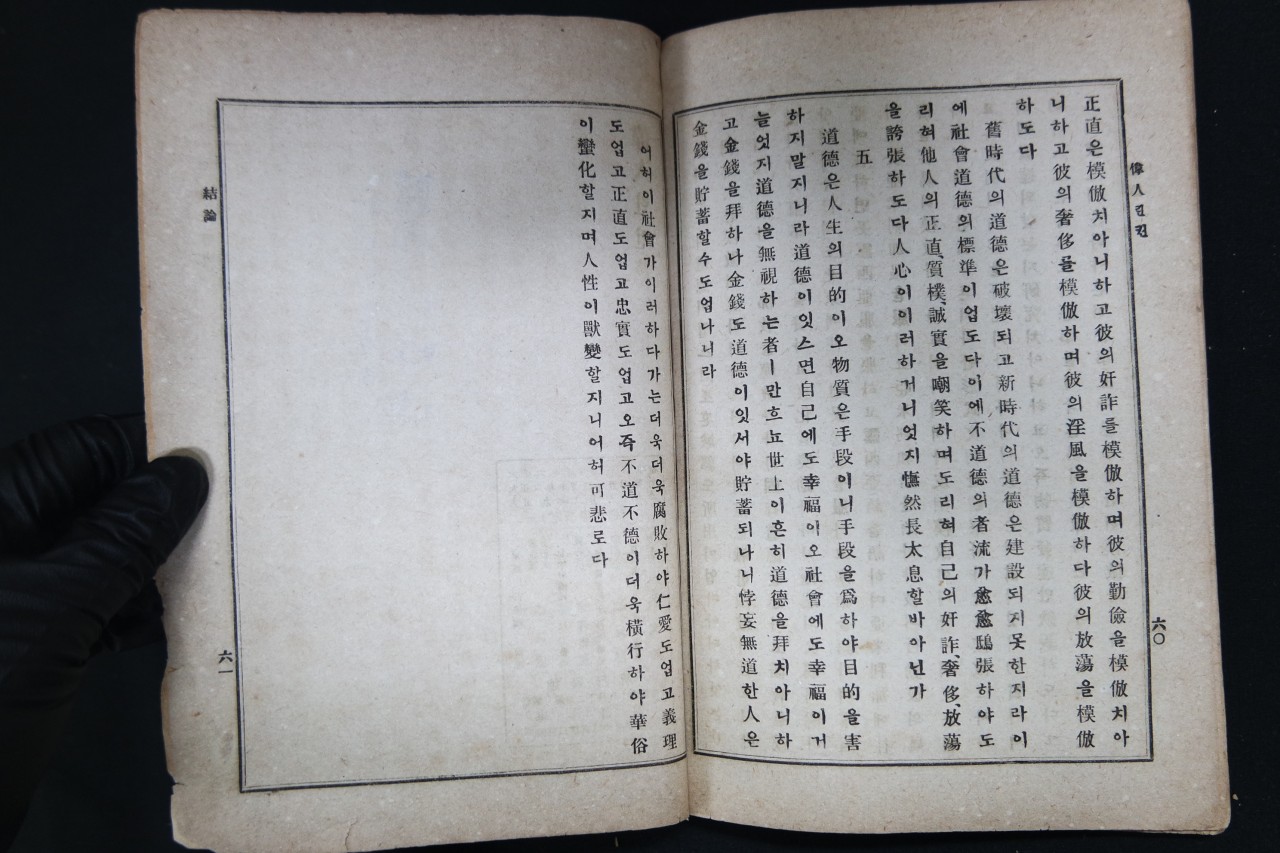 偉人린컨
六〇
正直은模倣치아니하고彼의奸詐를模倣하며彼의勤儉을模倣치아
니하고彼의奢侈를模倣하며彼의淫風을模倣하다彼의放蕩을模倣
하도다
舊時代의道德은破壞되고新時代의道德은建設되지못한지라이
에社會道德의標準이업도다이에不道德의者流가愈愈鴟張하야도
리혀他人의正直、質樸、誠實을嘲笑하며도리혀自己의奸詐、奢侈、放蕩
을誇張하도다人心이이러하거니엇지憮然長太息할바아닌가
五
道德은人生의目的이오物質은手段이니手段을爲하야目的을害
하지말지니라道德이잇스면自己에도幸福이오社會에도幸福이거
늘엇지道德을無視하는者ㅣ만흐뇨世上이흔히道德을拜치아니하
고金錢을拜하나金錢도道德이잇서야貯蓄되나니悖妄無道한人은
金錢을貯蓄할수도업나니라
어허이社會가이러하다가는더욱더욱腐敗하야仁愛도업고義理
도업고正直도업고忠實도업고오즉不道不德이더욱橫行하야華俗
이蠻化할지며人性이獸變할지니어허可悲로다
結論
六一